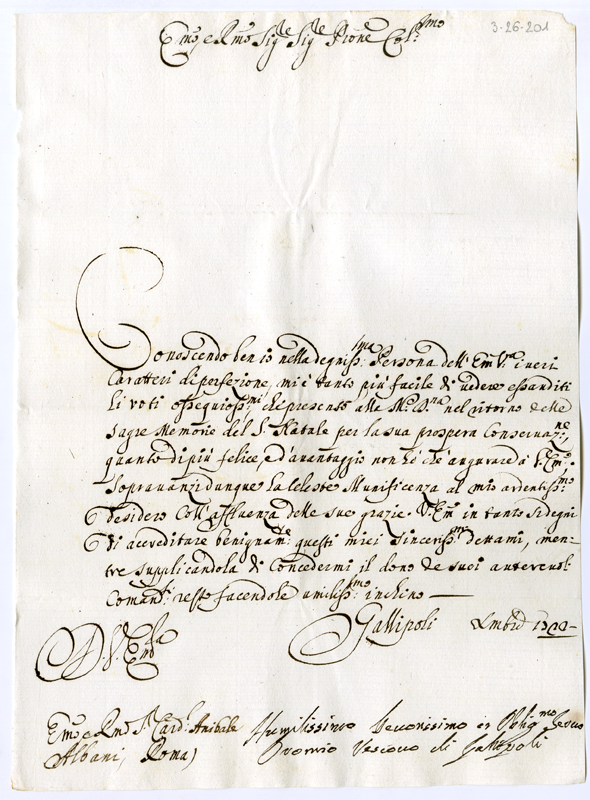 3-26-201
Emo e Rmo Sigre Sigre Prone Colmo
Conoscendo ben io nella degniss:ma Persona dell' Em Va i veri
Caratteri di perfezione, mi è tanto più facile di vedere essauditi
li voti ossequiosiss:mi che presento alla nel ritorno delle
sagre Memorie del S. Natale per la sua prospera Conservaz:ne,
quanto di più felice, e d'avantaggio non li che augurare à V. Em:
Sopravanzi dunque la Celeste Munificenza al mio ardentiss:mo
desidero coll' affluenza delle sue grazie. V. Em in tanto si degni
di accreditare benignamte questi miei sinceriss:mi dettami, men=
tre supplicandola di Concedermi il dono de suoi autorevoli
Comandi resto facendole umiliss:mo inchino
Gallipoli
D V. Enza
Emo e Rmo Sr Card. Anibale
Albani, Roma)
Humilissimo Devotissimo et Obligmo Servo
Oronzio Vescovo di Gallipoli